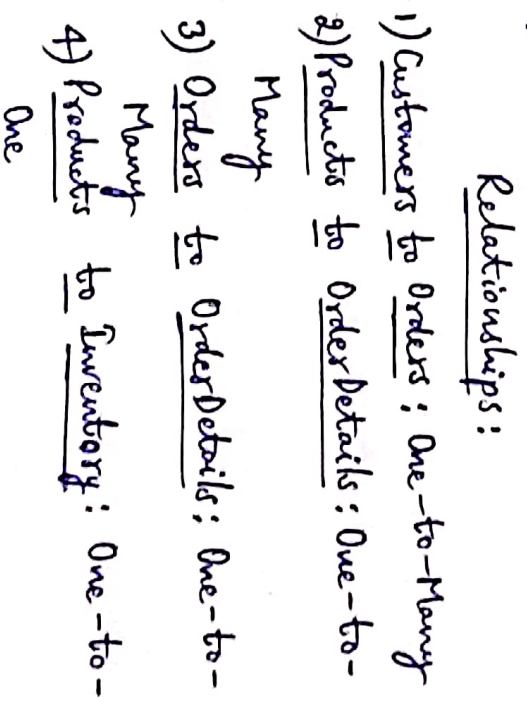 Relationships:
1) Customers to Orders: One-to-Many
2) Products to OrderDetails: One-to-
Many
3) Orders to OrderDetails: One-to-
Many
4) Products to Inventory: One-to-
One